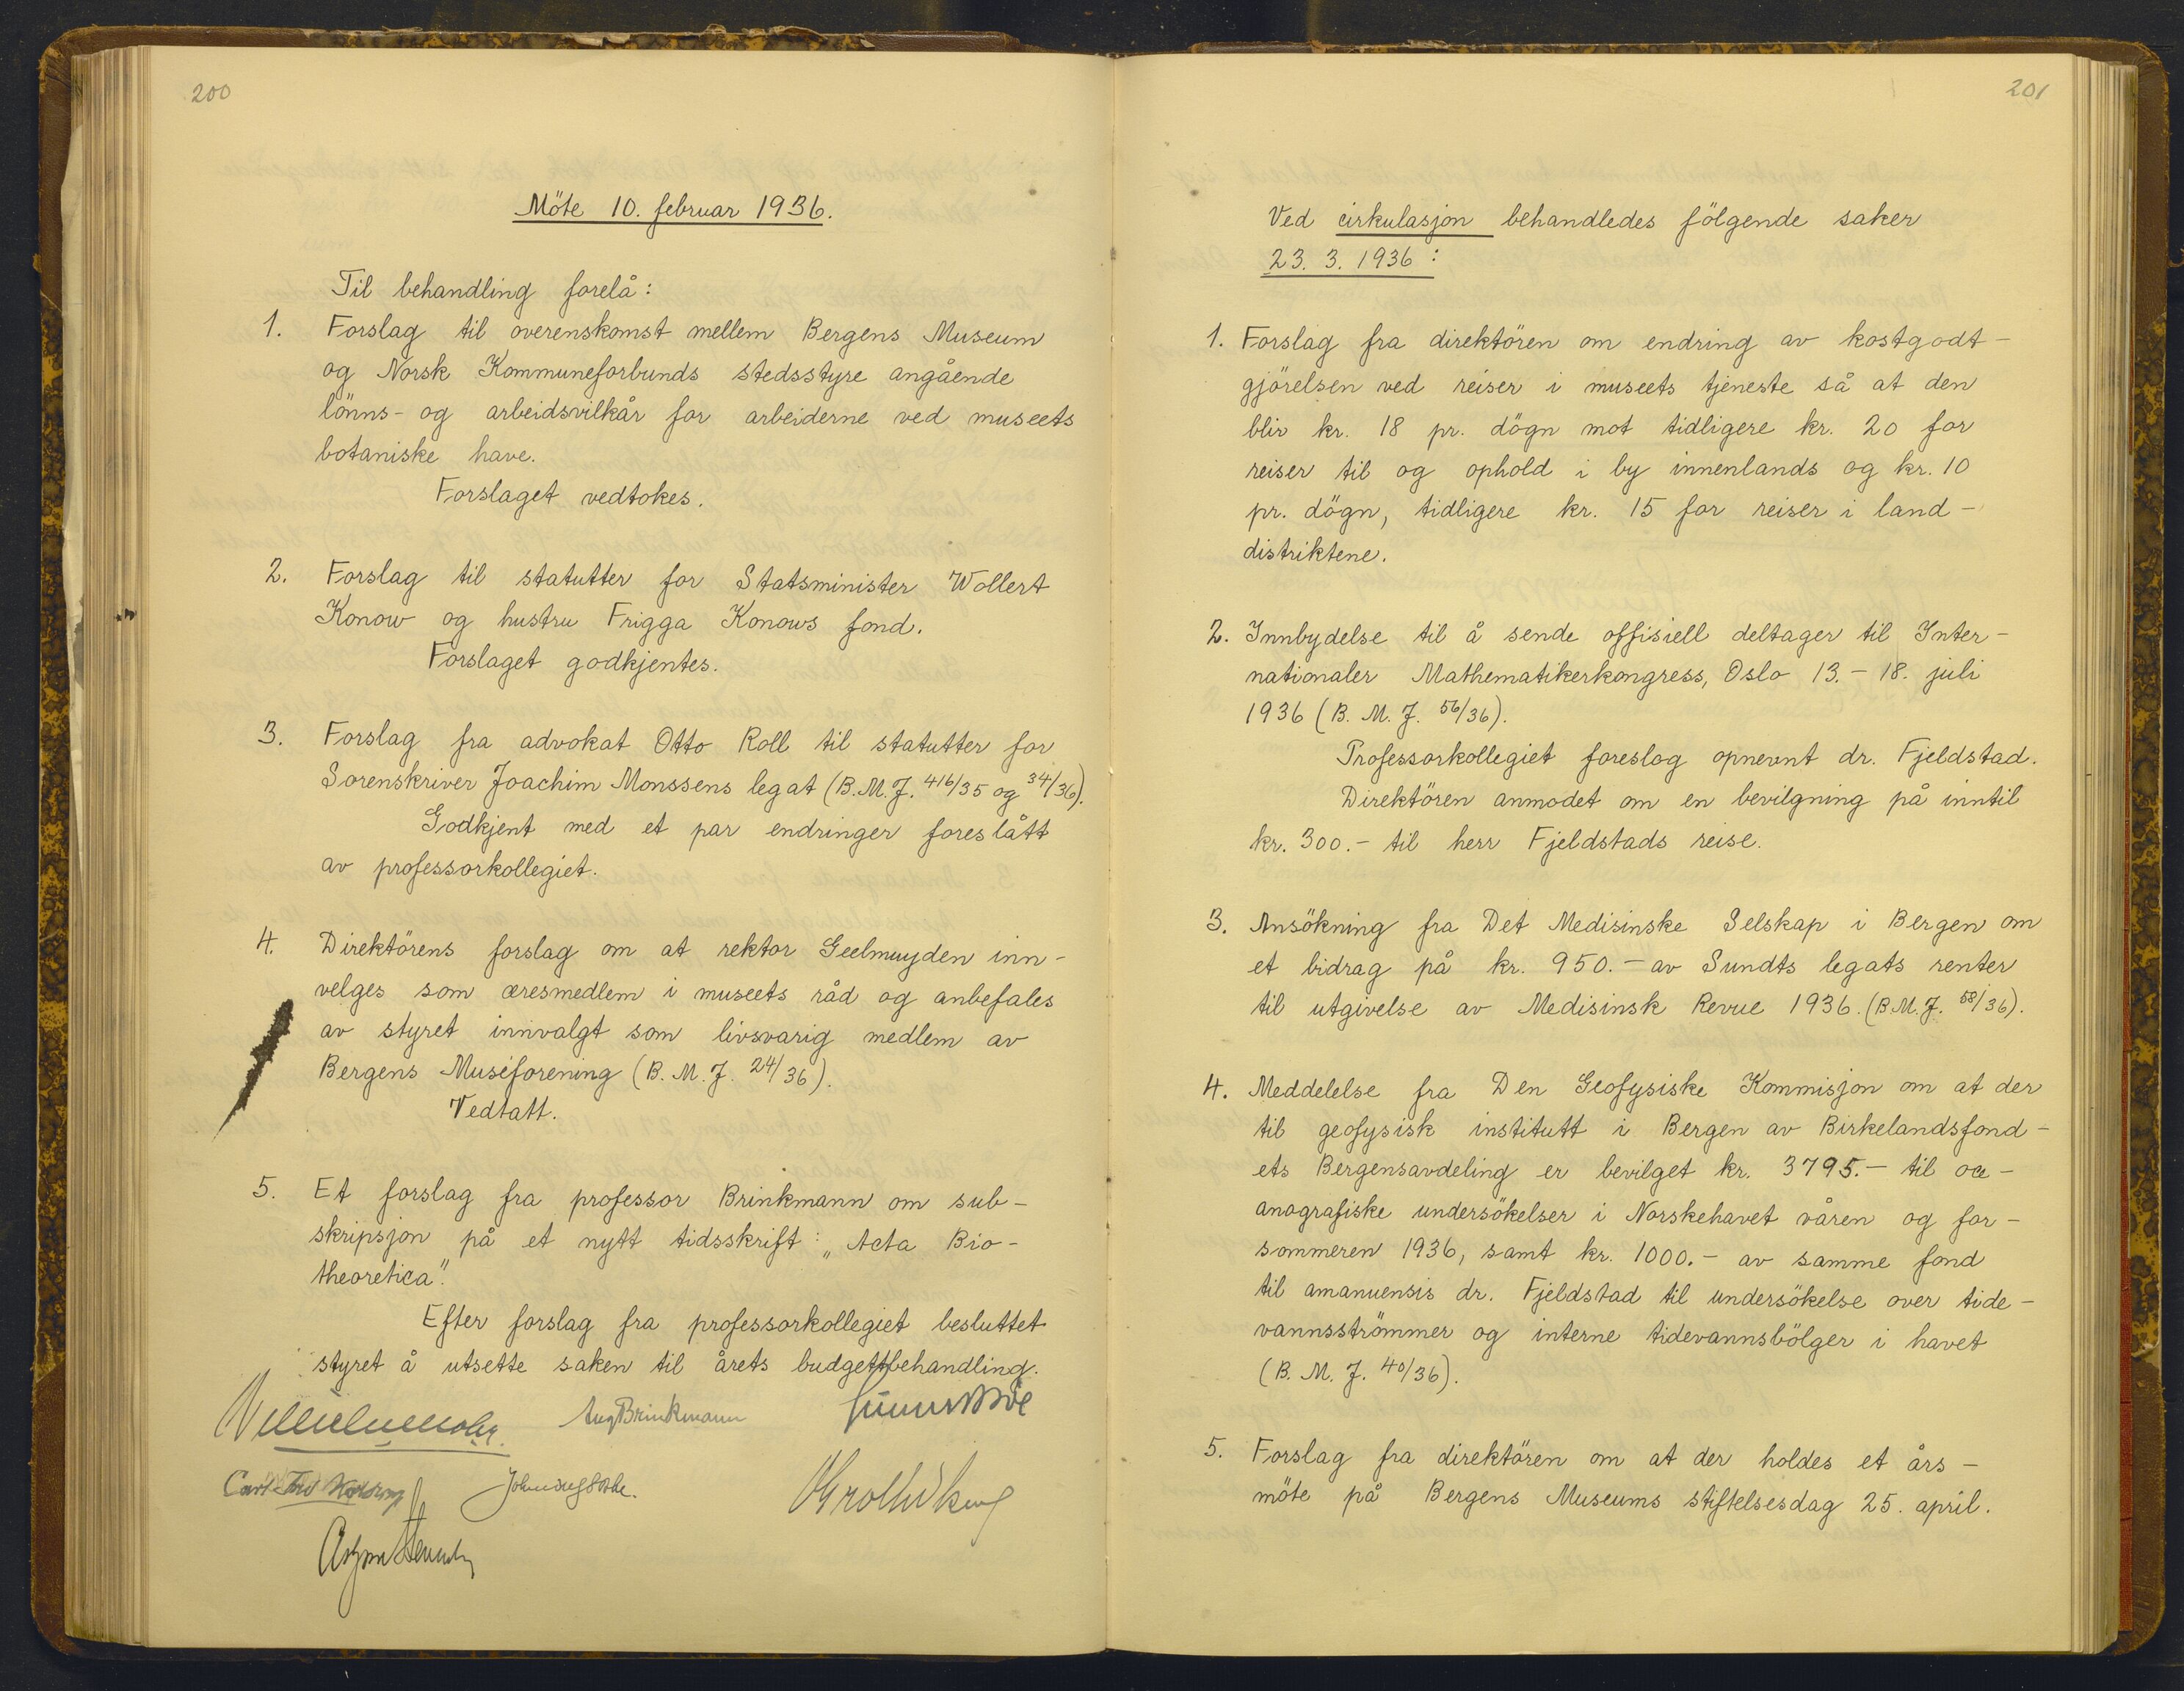 200
Möte 10. februar 1936.
Til behandling forelå:
1. Forslag til overenskomst mellem Bergens Museum
og Norsk Kommuneforbunds stedsstyre angående
lönns- og arbeidsvilkår for arbeiderne ved museets
botaniske have.
Forslaget vedtokes.
2. Forslag til statutter for Statsminister Wollert
Konow og hustru Frigga Konows fond.
Forslaget godkjentes.
3. Forslag fra advokat Otto Roll til statutter for
Sorenskriver Joachim Monssens legat (B.M.J. 416/35 og 34/36).
Godkjent med et par endringer foreslått
av professorkollegiet.
4. Direktörens forslag om at rektor Geelmuyden inn-
velges som æresmedlem i museets råd og anbefales
av styret innvalgt som livsvarig medlem av
Bergens Museforening (B. M. J. 24/36).
Vedtatt.
5. Et forslag fra professor Brinkmann om sub-
skripsjon på et nytt tidsskrift: „Acta Bio-
theoretica".
Efter forslag fra professorkollegiet besluttet
styret å utsette saken til årets budgettbehandling.
Aug Brinkmann
201
Ved cirkulasjon behandledes fölgende saker
23. 3. 1936:
1. Forslag fra direktören om endring av kostgodt-
gjörelsen ved reiser i museets tjeneste så at den
blir kr. 18 pr. dögn mot tidligere kr. 20 for
reiser til og ophold i by innenlands og kr. 10
pr. dögn, tidligere kr. 15 for reiser i land-
distriktene.
2. Innbydelse til å sende offisiell deltager til Inter-
nationaler Mathematikerkongress, Oslo 13. - 18. juli
1936 (B. M. J. 56/36).
Professorkollegiet foreslog opnevnt dr. Fjeldstad.
Direktören anmodet om en bevilgning på inntil
kr. 300.- til herr Fjeldstads reise.
3. Ansökning fra Det Medisinske Selskap i Bergen om
et bidrag på kr. 950.- av Sundts legats renter
til utgivelse av Medisinsk Revue 1936. (B.M.J. 58/36).
4. Meddelelse fra Den Geofysiske Kommisjon om at der
til geofysisk institutt i Bergen av Birkelandsfond-
ets Bergensavdeling er bevilget kr. 3795.- til oce-
anografiske undersökelser i Norskehavet våren og for-
sommeren 1936, samt kr. 1000.- av samme fond
til amanuensis dr. Fjeldstad til undersökelse over tide-
vannsströmmer og interne tidevannsbölger i havet
(B. M. J. 40/36).
5. Forslag fra direktören om at der holdes et års-
möte på Bergens Museums stiftelsesdag 25. april.